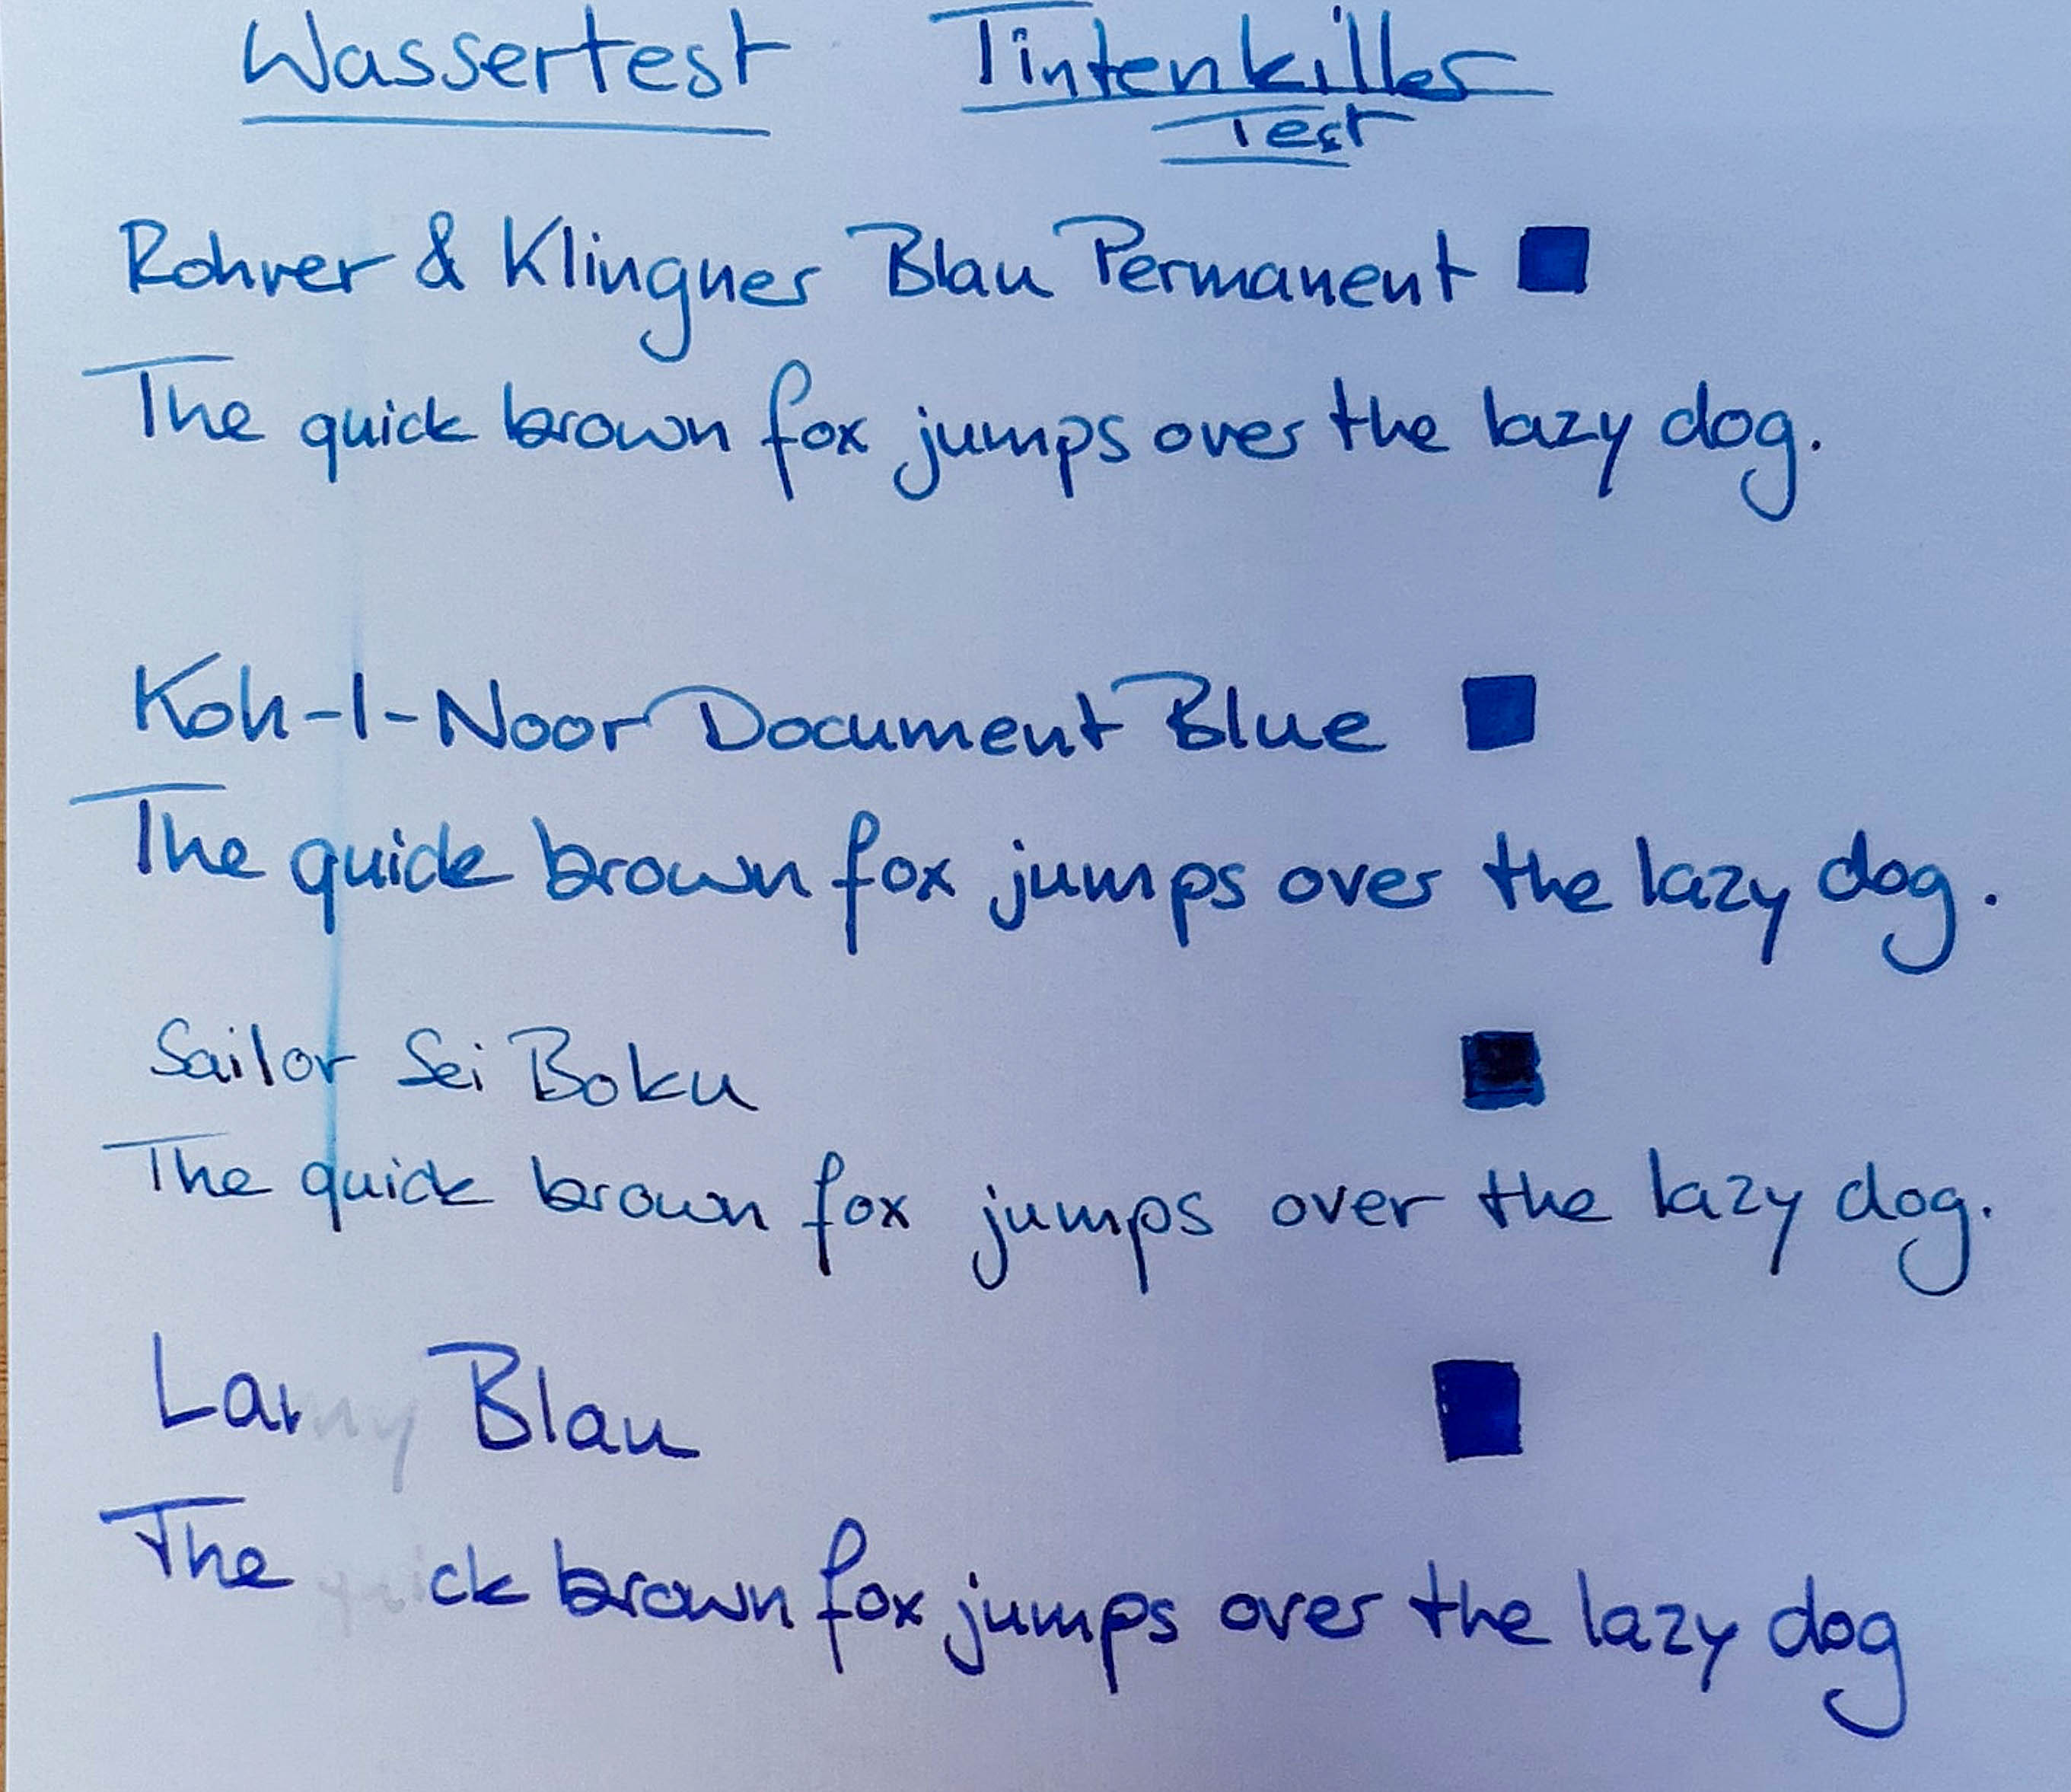 Wassertest Tintenkiller
Test
Rohrer & Klingner Blau Permanent
The quick brown fox jumps over the lazy dog.
Koh-I-Noor Document Blue
The quick brown fox jumps over the lazy dog.
Sailor Sei Boku
The quick brown fox jumps over the lazy dog.
Lamy Blau
The quick brown fox jumps over the lazy dog